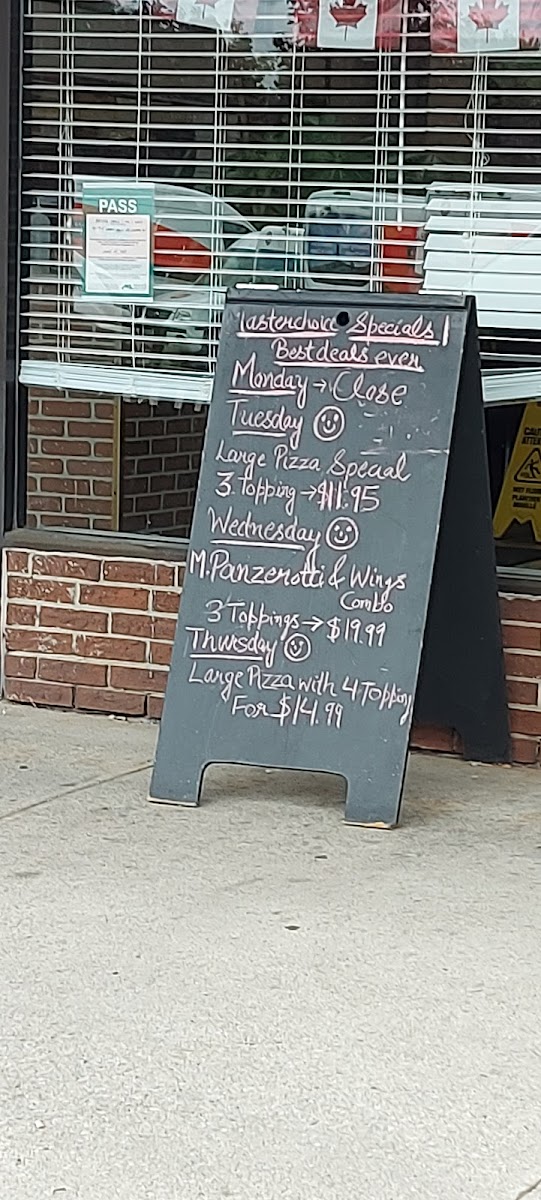 PASS
Tasterchoice Specials!
Best deals ever
Monday → Close
Tuesday
Large Pizza Special
3 Topping → $11.95
Wednesday
M. Panzerotti & Wings
Combo
3 Toppings → $19.99
Thursday
Large Pizza with 4 Topping
For $14.99